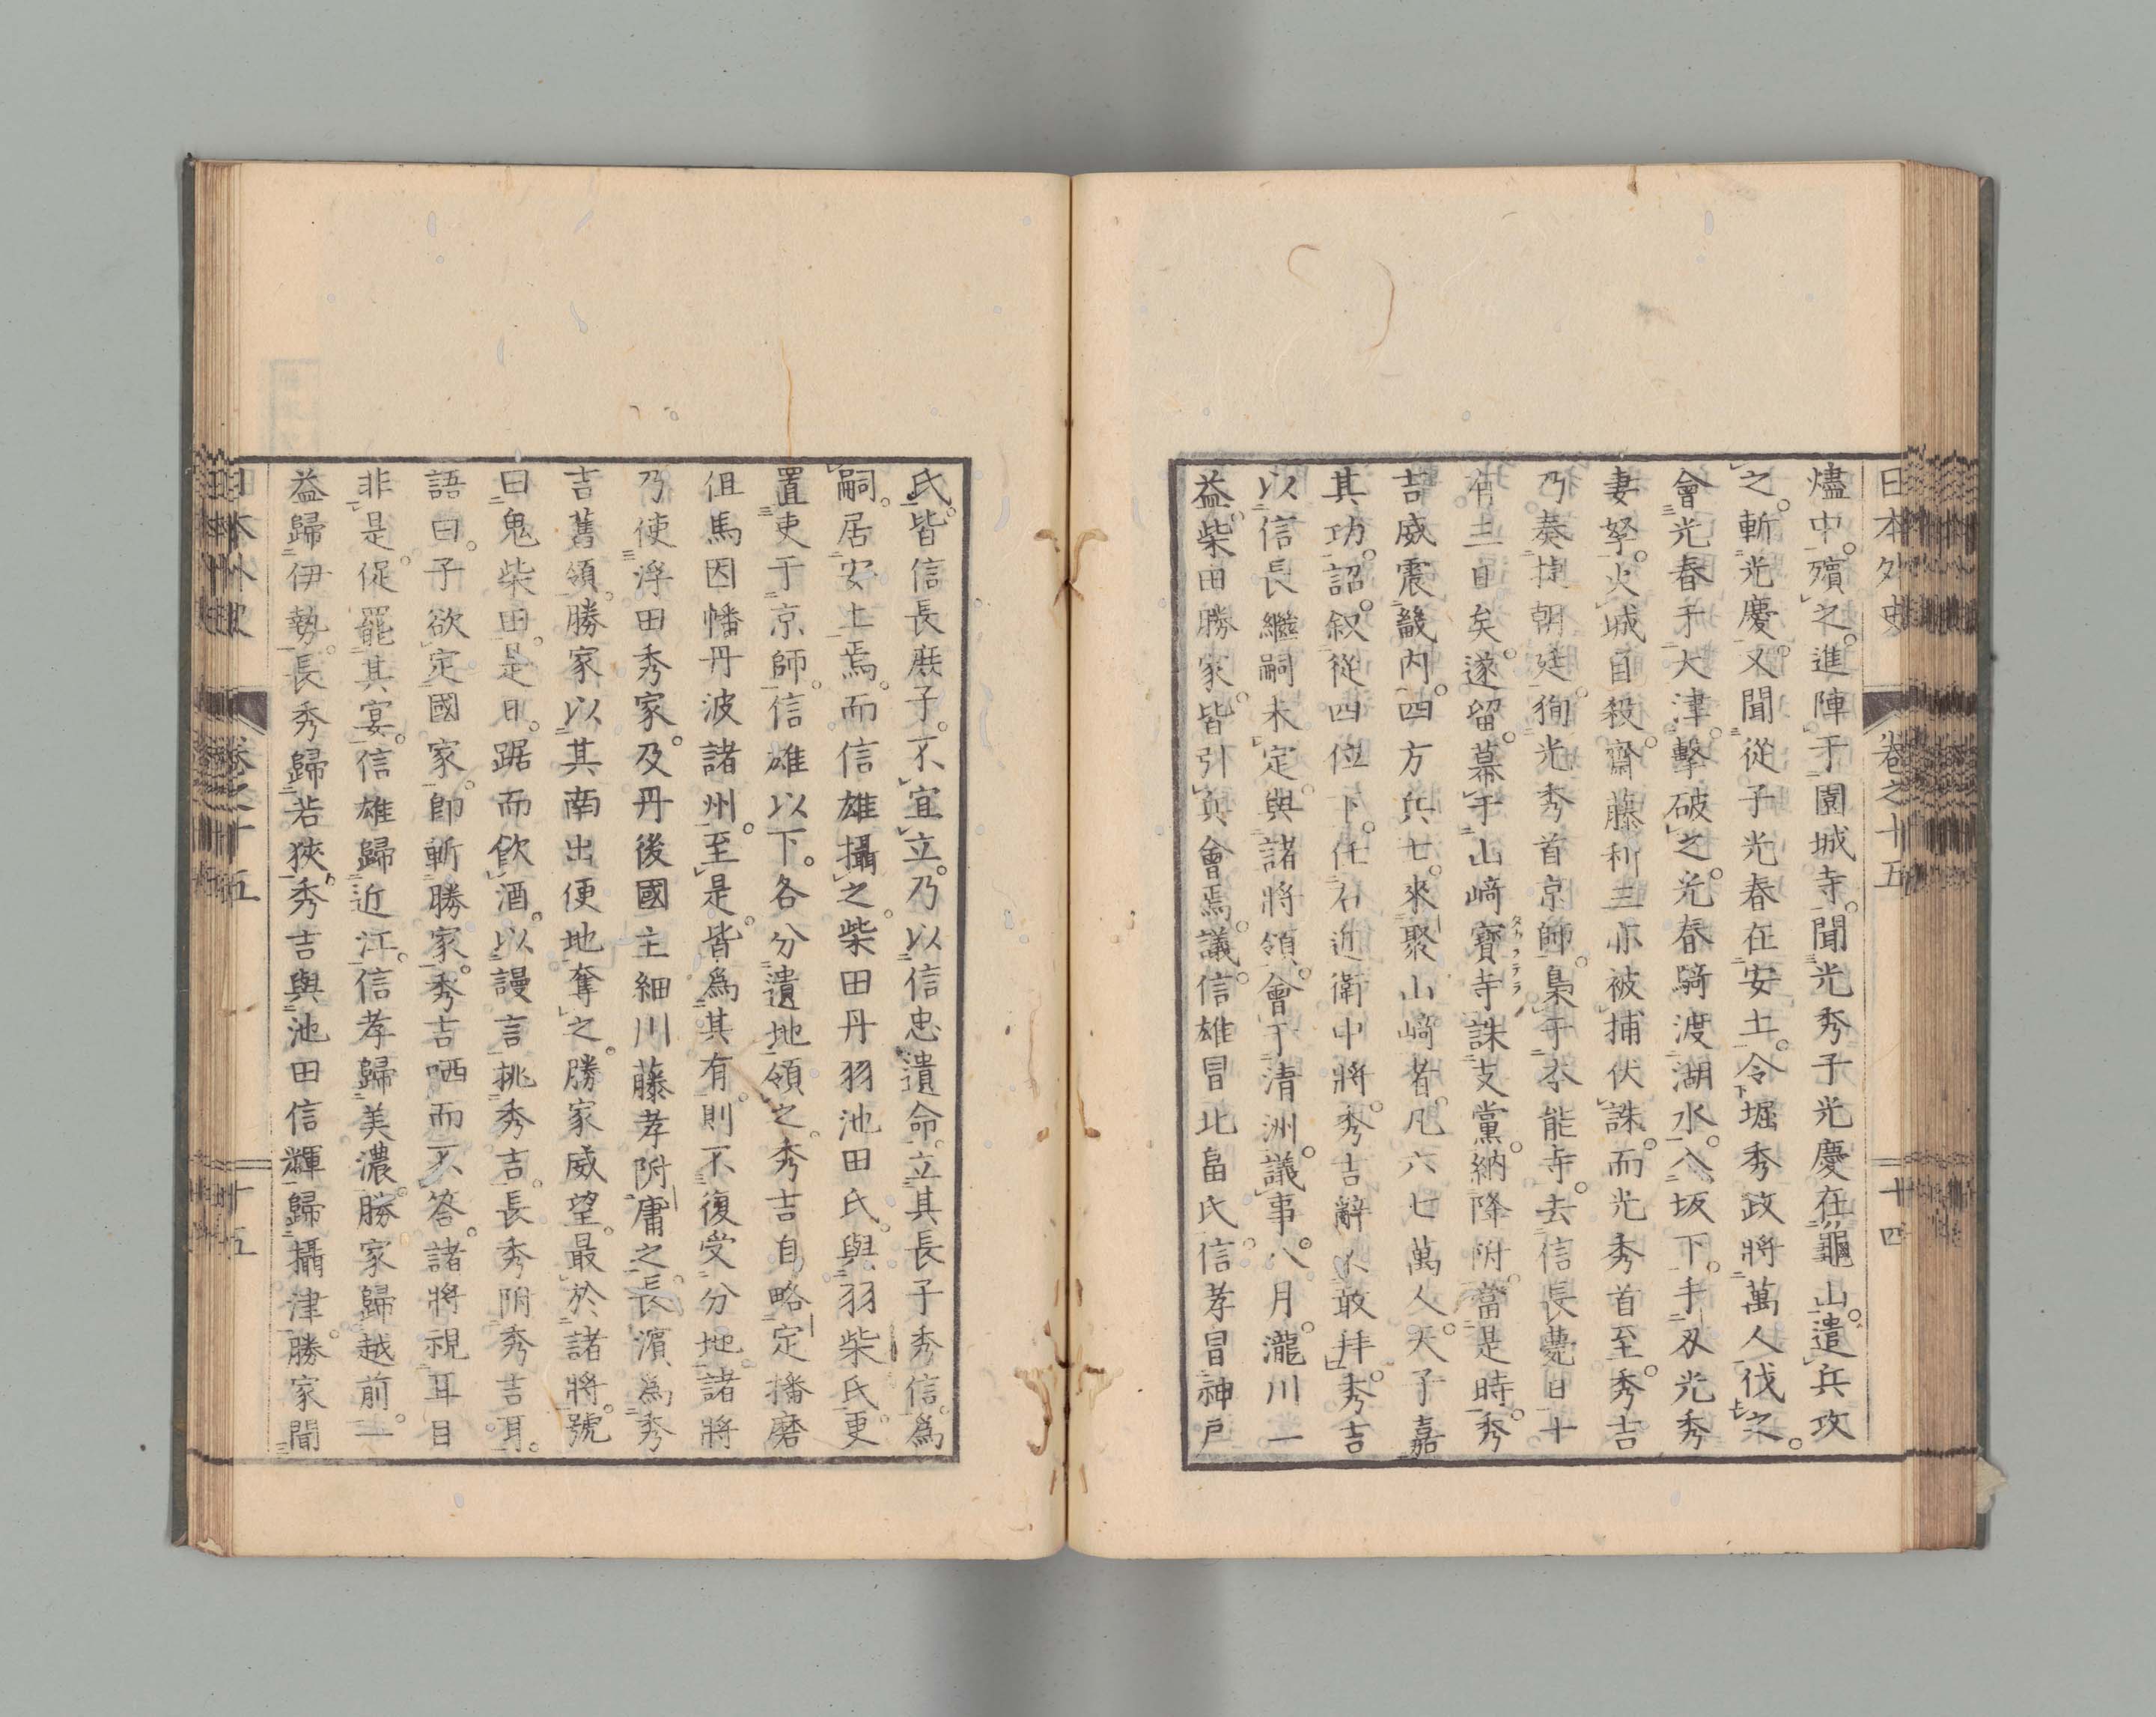 日本外史 卷之十五 十四
燼中。殯之。進陣于園城寺。聞光秀子光慶在龜山。遣兵攻
之。斬光慶。又聞從子光春在安土。令堀秀政將萬人伐之。
會光春于大津。擊破之。光春騎渡湖水。入坂下。手刃光秀
妻孥。火城自殺。齋藤利三亦被捕伏誅。而光秀首至。秀吉
乃奏捷朝廷。徇光秀首京師。梟于本能寺。去信長薨日十
有三日矣。遂留。幕于山﨑寶寺誅支黨。納降附。當是時。秀
吉威震畿內。四方兵士。來聚山﨑者。凡六七萬人。天子嘉
其功。詔。叙從四位下。任右近衛中將。秀吉辭不敢拜。秀吉
以信長繼嗣未定。與諸將領。會于清洲。議事。八月。瀧川一
益。柴田勝家。皆引兵會焉。議。信雄冒北畠氏。信孝冒神戶
氏。皆信長庶子。不宜立。乃以信忠遺命。立其長子秀信。爲
嗣。居安土焉。而信雄攝之。柴田丹羽池田氏。與羽柴氏。更
置吏于京師。信雄以下。各分遺地領之。秀吉自略定播磨
但馬因幡丹波諸州。至是。皆爲其有。則不復受分地。諸將
乃使浮田秀家。及丹後國主細川藤孝附庸之。長濱爲秀
吉舊領。勝家以其南出便地奪之。勝家威望。最於諸將。號
曰鬼柴田。是日。踞而飮酒。以謾言挑秀吉。長秀附秀吉耳
語曰。子欲定國家。卽斬勝家。秀吉哂而不答。諸將視耳目
非是。促罷其宴。信雄歸近江。信孝歸美濃。勝家歸越前。一
益歸伊勢。長秀歸若狹。秀吉與池田信輝歸攝津。勝家聞
日本外史 卷之十五 十五